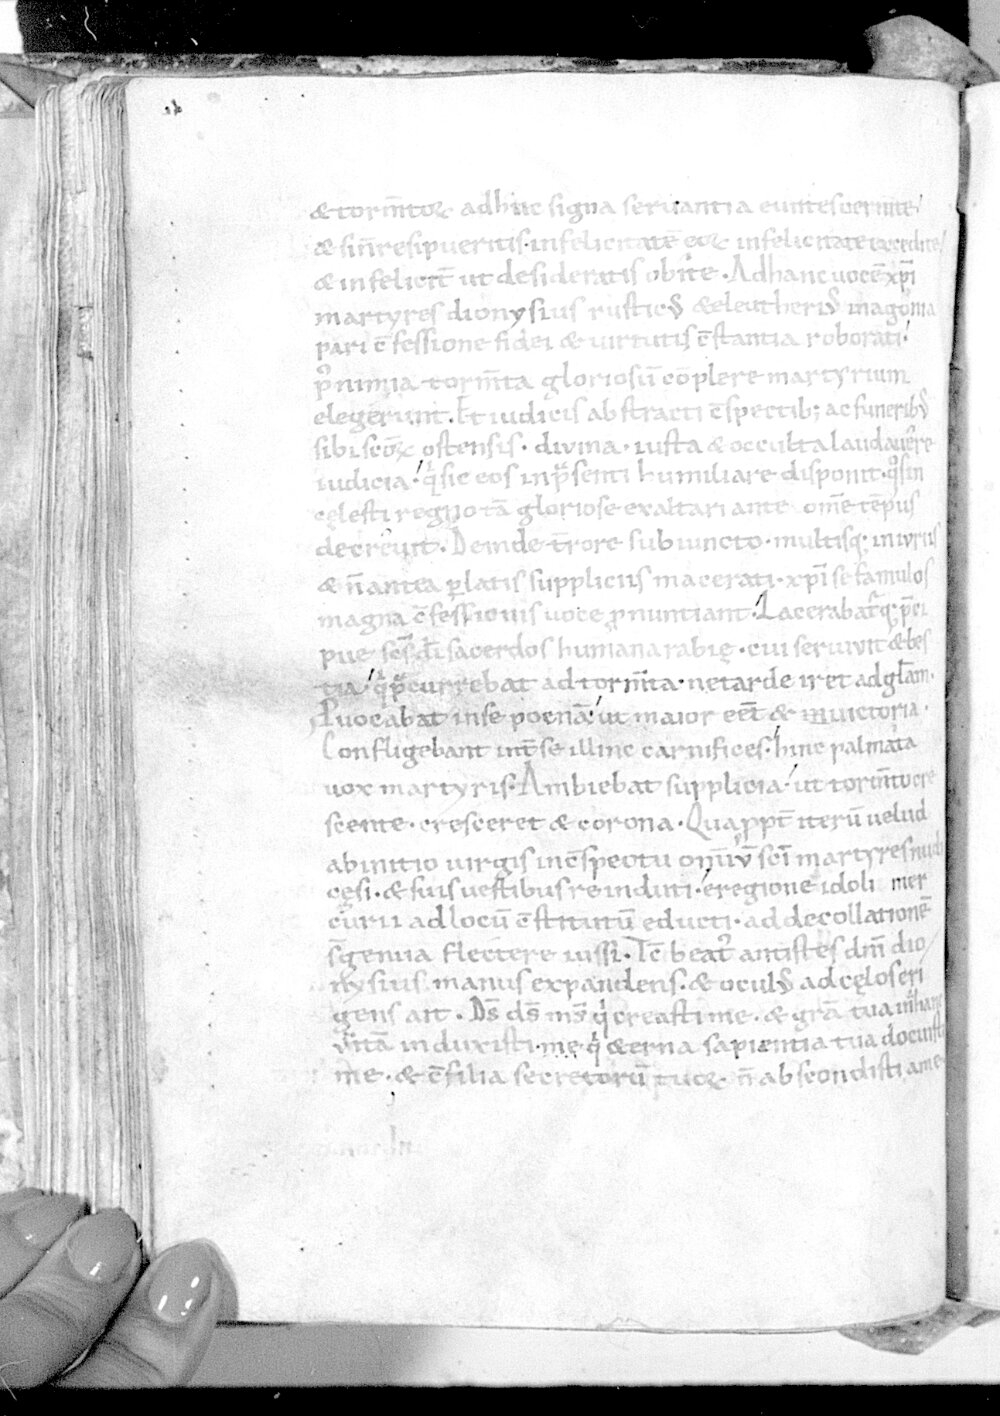 & torm̄toꝝ adhuc signa seruantia euntes uernite
& sin̄ resipueritis· infelicitatē eoꝝ infelicitate accedite
& infelicit̄ ut desideratis obite· Ad hanc uocē xp̄i
martyres dionysius rusticꝰ & eleutheriꝰ in agonia
pari c̄fessione fidei & uirtutis c̄stantia roborati·
p nimia torm̄ta gloriosū cōplere martyrium
elegerunt· Et iudicis abstracti c̄spectib; ac funeribꝰ
sibi sc̄oꝝ ostensis· diuina· iusta & occulta laudauere
iudicia· qͥ sic eos in p̄senti humiliare disponit· qͦs in
cęlesti regno tā gloriose exaltari ante om̄e tēpus
decreuit· Deinde t̄rore subiuncto· multisq; iniuriis
& n̄ antea ꝑlatis suppliciis macerati· xp̄i se famulos
magna c̄fessionis uoce ꝓnuntiant· Lacerabat̄q; p̄ci
pue sc̄s d̄i sacerdos humana rabię· cui seruiuit & bes
tia· qͥ p̄currebat ad torm̄ta· ne tarde iret ad gl̄am·
Puocabat in se poenā· ut maior eēt & in uictoria·
Confligebant int̄ se illinc carnifices· hinc palmata
uox martyris· Ambiebat supplicia· ut torm̄to cre
scente· cresceret & corona· Quaꝓpt̄ iterū uelud
ab initio uirgis in c̄spectu omniū sc̄i martyres nudi
cęsi· & suis uestibus reinduti· e regione idoli mer
curii ad locū c̄stitutū educti· ad decollationē
s̄ genua flectere iussi· Tc̄ beat᷒ antistes dn̄i dio
nysius manus expandens· & oculꝰ ad cęlos eri
gens ait· Dn̄s ds̄ ms̄ qͥ creasti me· & grā tua in hanc
uitā induxisti· me qͥ &erna sapientia tua docuisti
me· & c̄silia secretorū tuoꝝ n̄ abscondisti a me